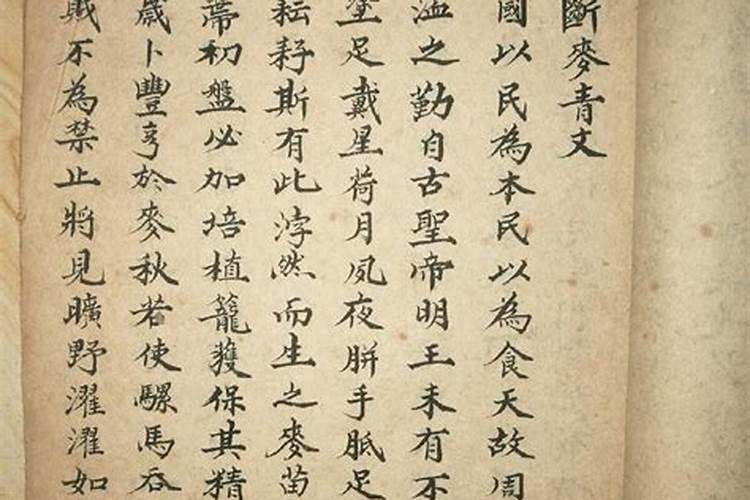 斷麥青文
國以民為本民以為食天故周
溢之勤自古聖帝明王未有不
塗足戴星荷月夙夜胼手胝足
耘耔斯有此浡然而生之麥苗
蒂初盤必加培植籠蔓保其精
歲卜豐亨於麥秋若使騾馬吞
賤不為禁止將見曠野濯濯如